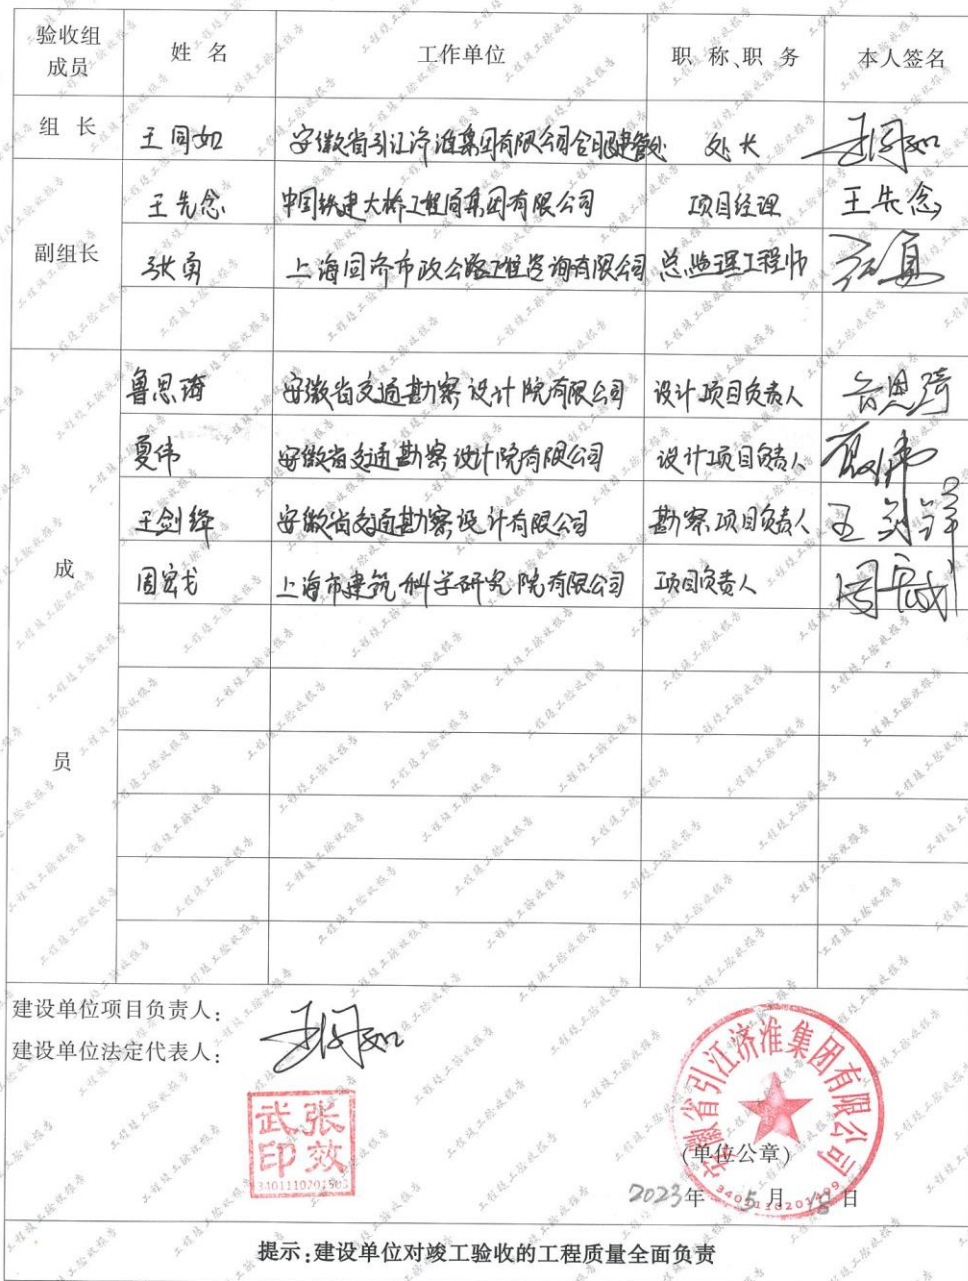 验收组成员 姓 名 工作单位 职 称、职 务 本人签名
组 长 王同如 安徽省引江济淮集团有限公司合肥建管处 处长 王同如
副组长 王先念 中国铁建大桥工程局集团有限公司 项目经理 王先念
张勇 上海同济市政公路工程咨询有限公司 总监理工程师 张勇
成员 鲁思琦 安徽省交通勘察设计院有限公司 设计项目负责人 鲁思琦
夏伟 安徽省交通勘察设计院有限公司 设计项目负责人 夏伟
王剑锋 安徽省交通勘察设计有限公司 勘察项目负责人 王剑锋
周宏戈 上海市建筑科学研究院有限公司 项目负责人
建设单位项目负责人: 王同如
建设单位法定代表人:
张效武印
安徽省引江济淮集团有限公司
(单位公章)
2023年 5月 18日
提示:建设单位对竣工验收的工程质量全面负责
工程竣工验收报告